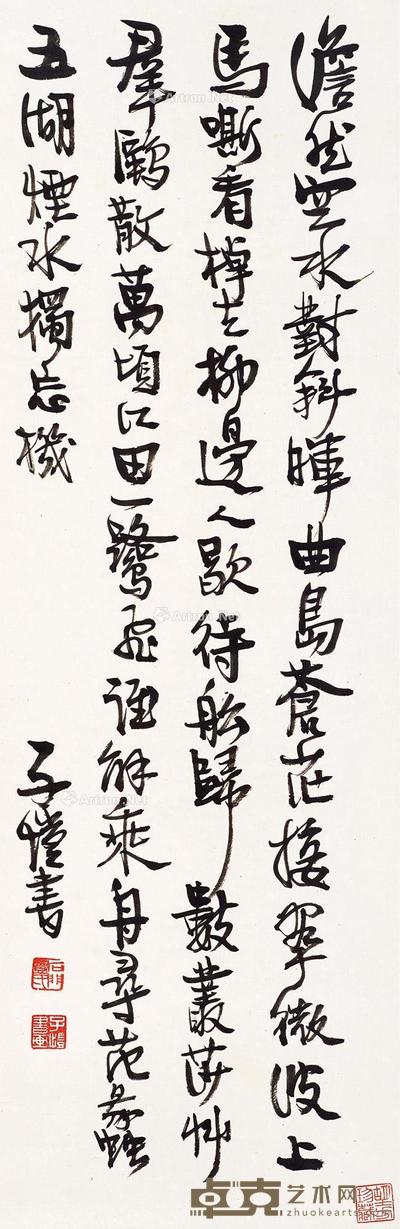 澹然空水對斜暉曲島蒼茫接翠微波上
馬嘶看棹去柳邊人歇待船歸數叢莎艸
羣鷗散萬頃江田一鷺飛誰解乘舟尋范蠡
五湖煙水獨忘機
子愷書
子愷書畫
Artron.Net
Artron.Net
Artron.Net
Artron.Net
卓克艺术网
zhuokearts.com